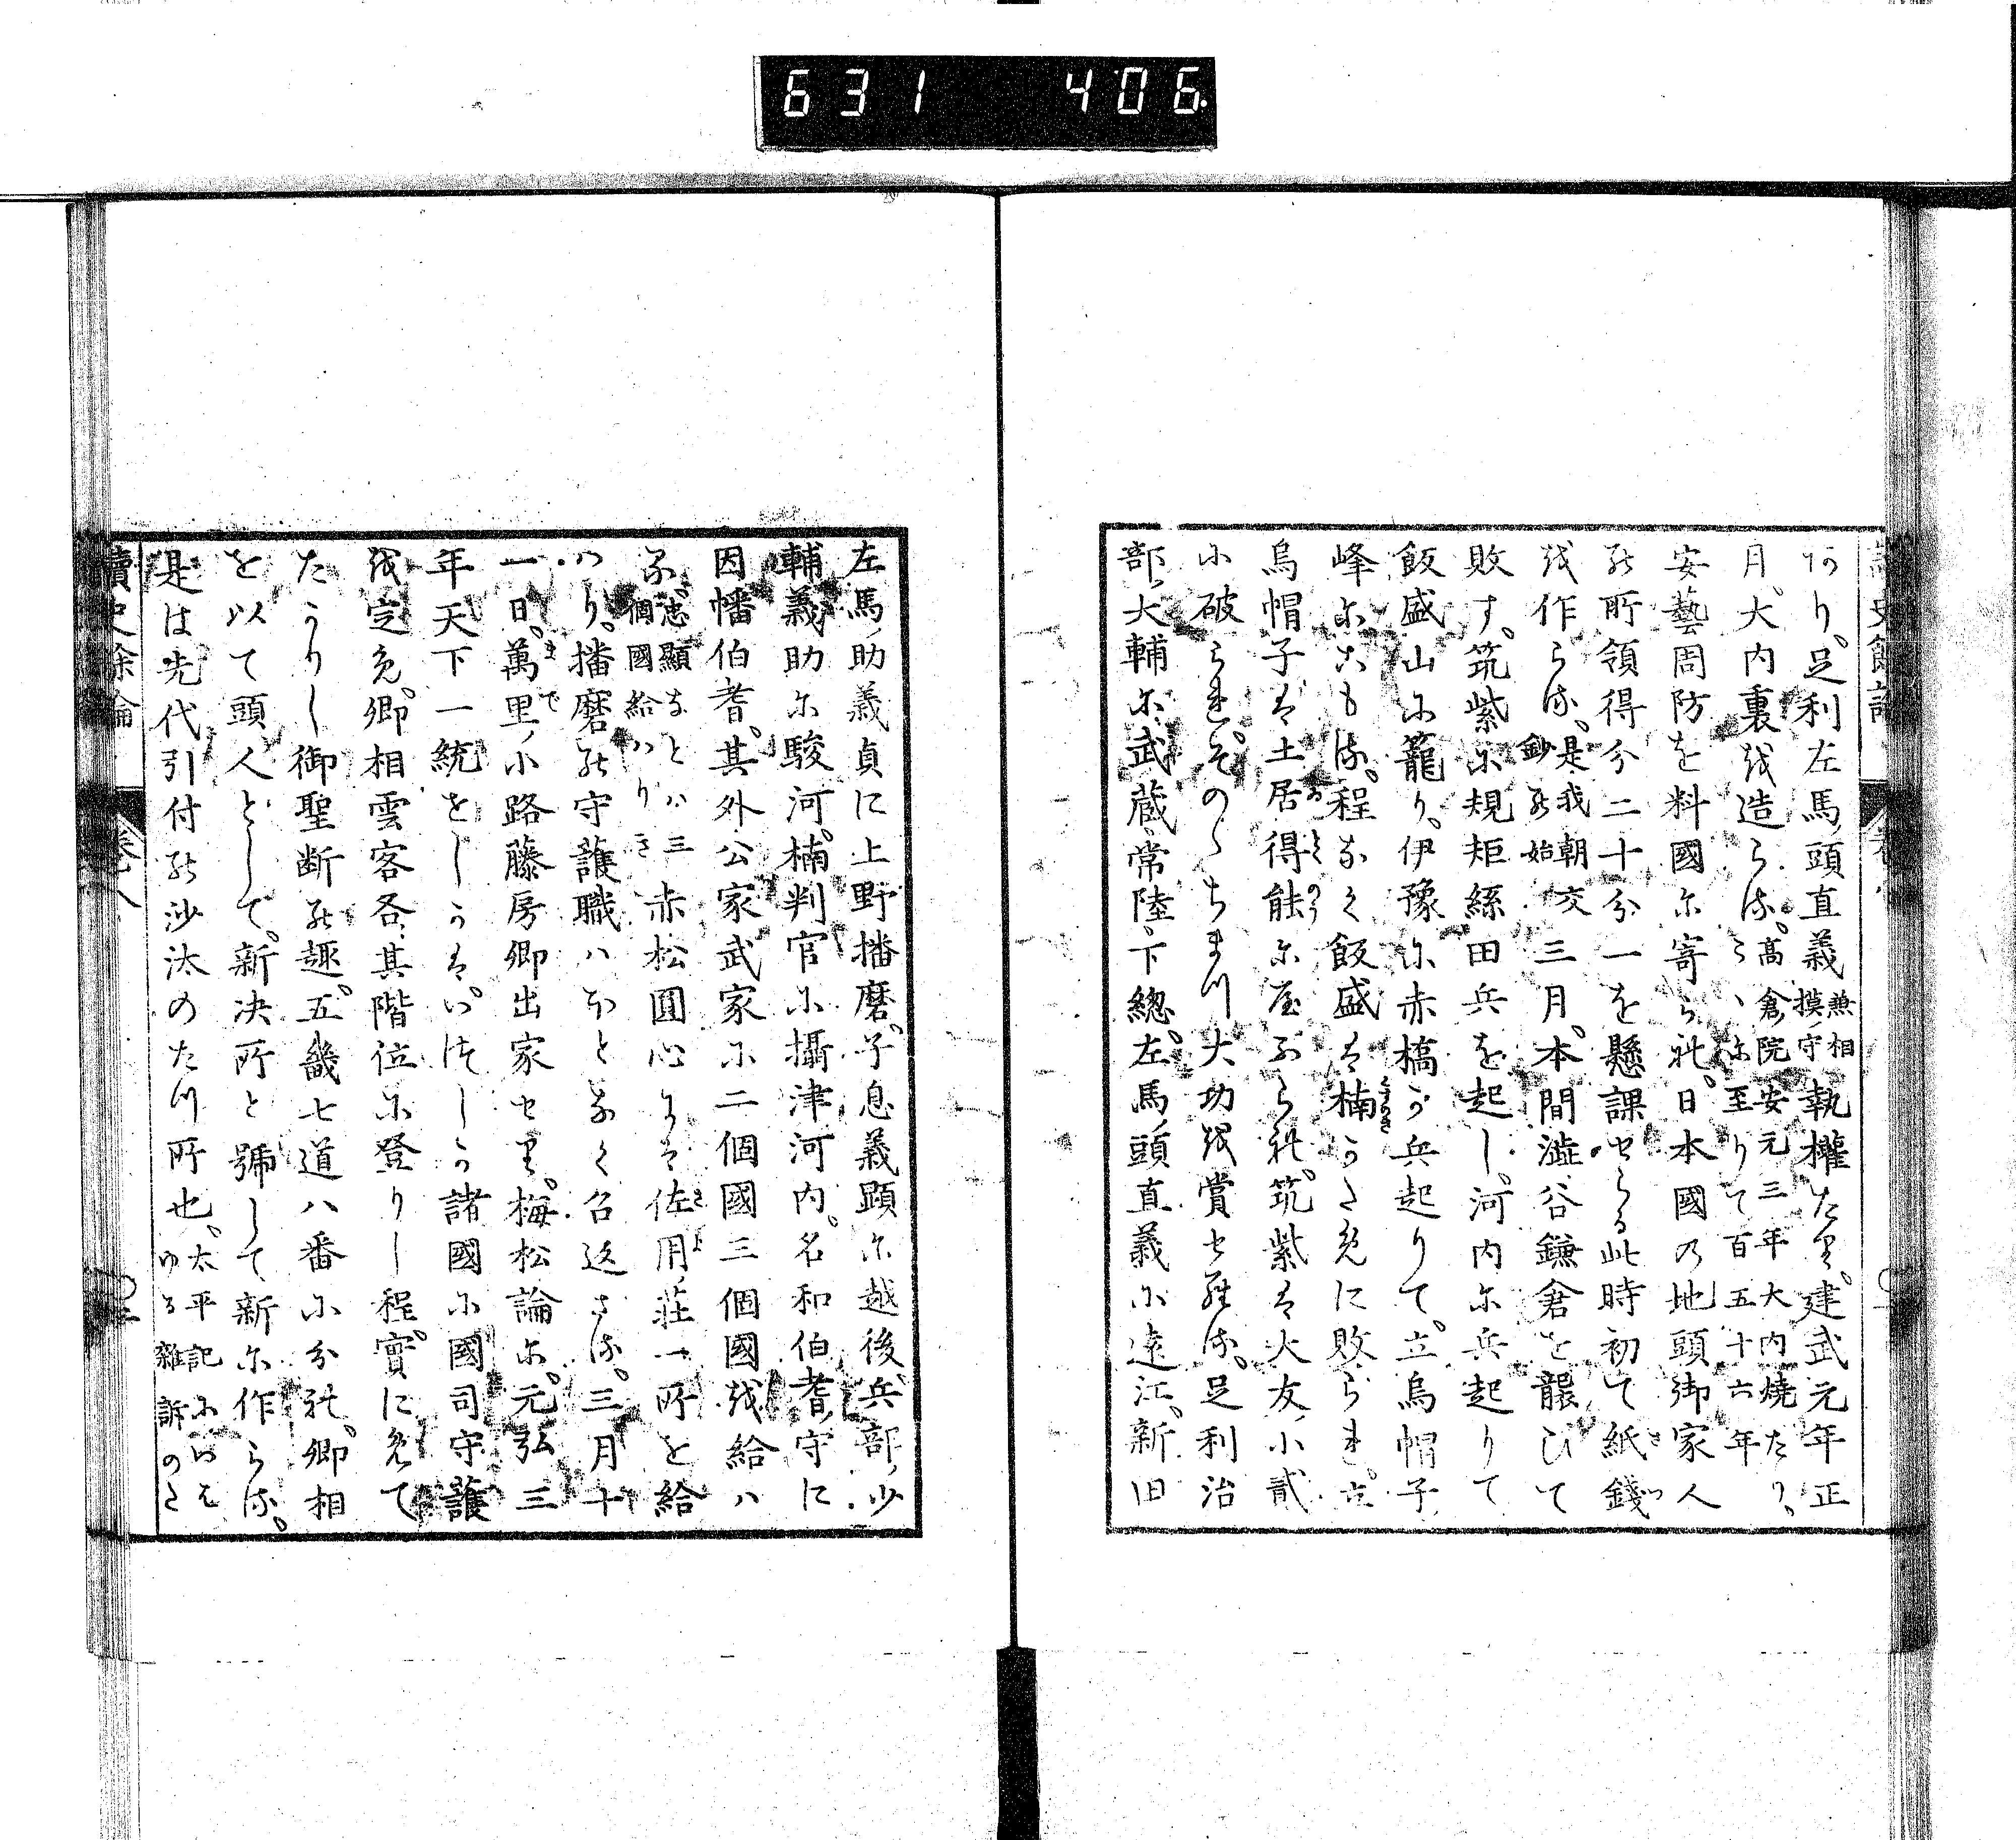 631 406
あり。足利左馬ノ頭直義兼相摸ノ守執權たり。建武元年正
月。大内裏を造らる。髙倉院安元三年大内燒たり、こゝに至りて百五十六年
安藝周防を料國に寄られ。日本國の地頭御家人
の所領得分二十分一を懸課せらる此時初て紙錢
を作らる。是我朝交鈔の始三月。本間澁谷鎌倉を襲ひて
敗す。筑紫に規矩絲田兵を起し。河内に兵起りて
飯盛山に籠り。伊豫に赤橋が兵起りて。立烏帽子
峰にこもる。程なく飯盛は楠がために敗られ。立
烏帽子は土居得能に屋ぶられ。筑紫は大友ノ小貳
に破らる。そのゝちまづ大功を賞せらる。足利治
部ノ大輔に武藏常陸下總。左馬ノ頭直義に遠江。新田
左馬ノ助義貞に上野播磨。子息義顕に越後。兵部ノ少
輔義助に駿河。楠判官に攝津河内。名和伯耆ノ守に
因幡伯耆。其外公家武家に二個國三個國を給は
る。忠顯などハ三個國給ハりき赤松圓心には佐用ノ莊一所を給
ハり。播磨の守護職ハほどなく召返さる。三月十
一日。萬里ノ小路藤房卿出家せり。梅松論に。元弘三
年天下一統せしかば。ほしか諸國に國司守護
を定め。卿相雲客各其階位に登りし程。實にめで
たかりし御聖断の趣。五畿七道八番に分れ。卿相
を以て頭人として。新决所と號して新に作らる。
是は先代引付の沙汰のたつ所也。太平記にいはゆる雜訴のさ
讀史餘論 卷八